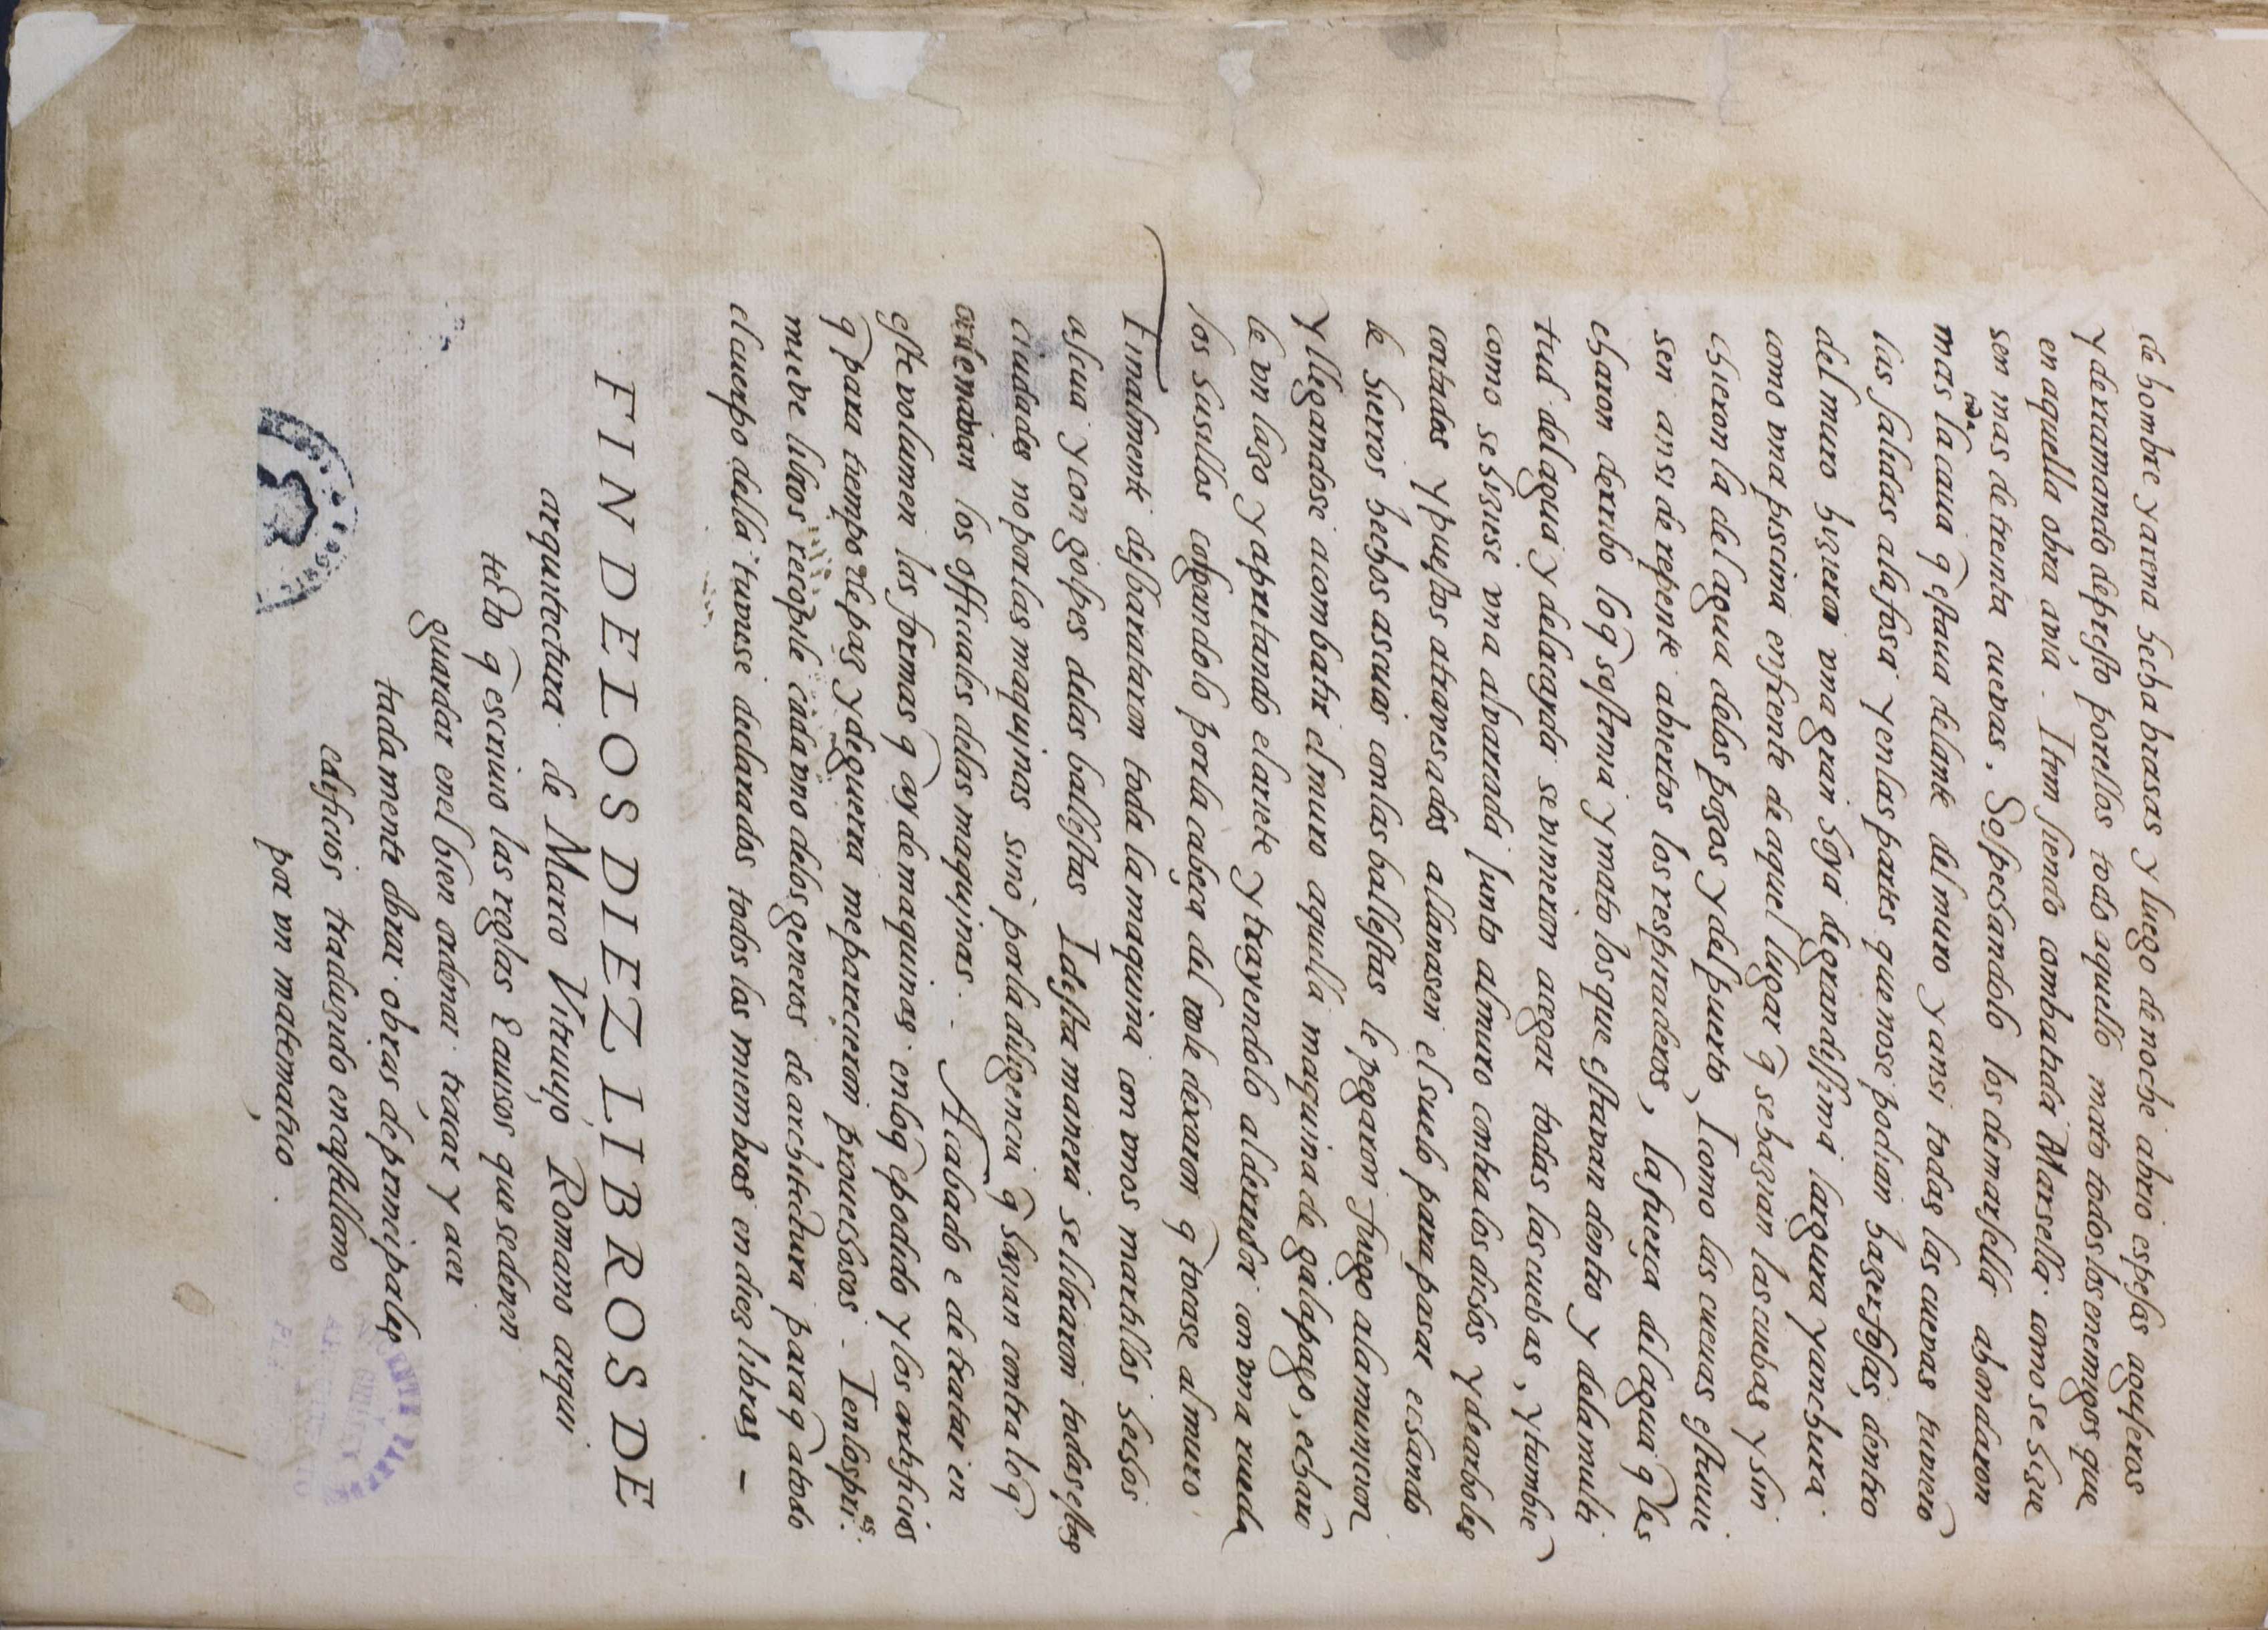 de hombre y arena hecha brasas y luego de noche abrio espesas aguxeros
y derramando de presto por ellos todo aquello mato todos los enemigos que
en aquella obra avia . Item siendo combatida Marsella como se sigue
sen mas de treinta cuevas . Sospechandolo los de marsella ahondaron
mas la caua q̃ estaua delante del muro y ansi todas las cuevas tuuierõ
las salidas a la fosa y en las partes que no se podian hazer fosas, dentro
del muro hizieron vna gran hoya de grandissima largura y anchura
como vna piscina enfrente de aquel lugar q̃ se hazian las cuebas y hin
chieron la del agua de los pozos y del puerto, I como las cueuas estuuie
sen ansi de repente abiertos los respiraderos, la fuerça del agua q̃ les
echaron derribo lo q̃ sostenia y mato los que estavan dentro y de la multi
tud del agua y de la cayda se vinieron a cegar todas las cuebas, y tambiẽ
como se hiziese vna albarrada junto al muro contra los dichos y de arboles
cortados y puestos atravesados allanasen el suelo para pasar echando
le hierros hechos ascuas con las ballestas le pegaron fuego a la municion
y llegandose a combatir el muro aquella maquina de galapago, echarõ
le vn lazo y apretando el ariete y trayendolo alderredor con vna rueda
los husillos colgandolo por la cabeça del no le dexaron q̃ tocase al muro
Finalmente desbarataron toda la maquina con vnos martillos hechos
ascua y con golpes de las ballestas I desta manera se libraron todas estas
ciudades no por las maquinas sino por la diligencia q̃ hazian contra lo q̃
ordenaban los officiales de las maquinas . - Acabado e de tratar en
este volumen las formas q̃ ay de maquinas en lo q̃ e podido y los artificios
q̃ para tiempo de paz y de guerra me parecieron prouechosos - I en los pri.os
nueve libros recopile cada vno de los generos de architectura para q̃ a todo
el cuerpo della tuuiese declarados todos los miembros en diez libros -
FIN DE LOS DIEZ LIBROS DE
arquitectura de Marco Vitruuio Romano arqui
tecto q̃ escriuio las reglas e auisos que se deven
guardar en el bien ordenar traçar y acer
tadamente obrar obras de principales
edificios traduzido en castellano
por vn matematico .